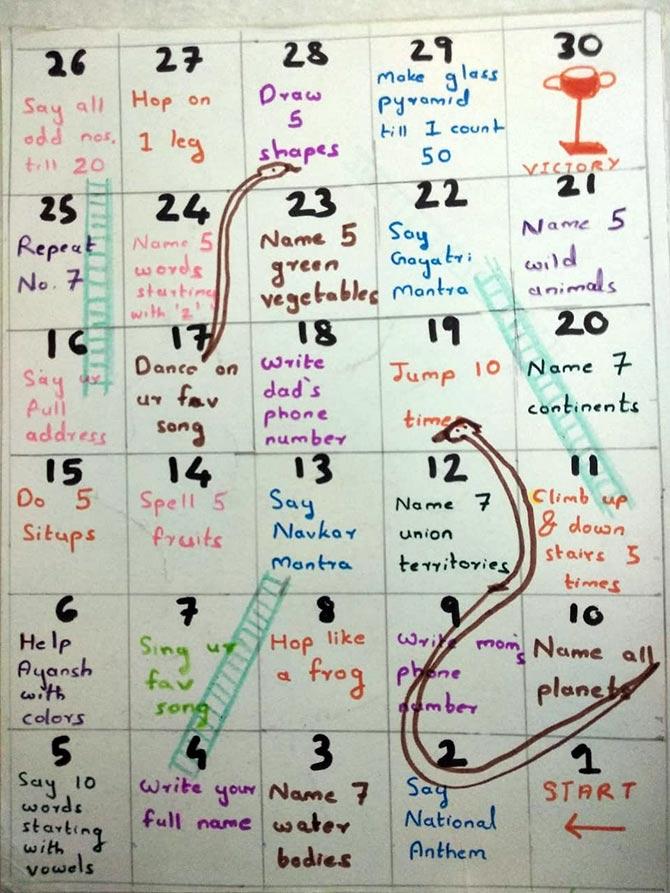 26
Say all
odd nos.
till 20
27
Hop on
1 leg
28
Draw
5
shapes
29
Make glass
pyramid
till I count
50
30
VICTORY
25
Repeat
No. 7
24
Name 5
words
starting
with 'z'
23
Name 5
green
vegetables
22
Say
Gayatri
Mantra
21
Name 5
wild
animals
16
Say ur
full
address
17
Dance on
ur fav
song
18
Write
dad's
phone
number
19
Jump 10
times
20
Name 7
continents
15
Do 5
Situps
14
Spell 5
fruits
13
Say
Navkar
Mantra
12
Name 7
union
territories
11
Climb up
& down
stairs 5
times
6
Help
Ayansh
with
colors
7
Sing ur
fav
song
8
Hop like
a frog
9
Write mom's
phone
number
10
Name all
planets
5
Say 10
words
starting
with
vowels
4
Write your
full name
3
Name 7
water
bodies
2
Say
National
Anthem
1
START